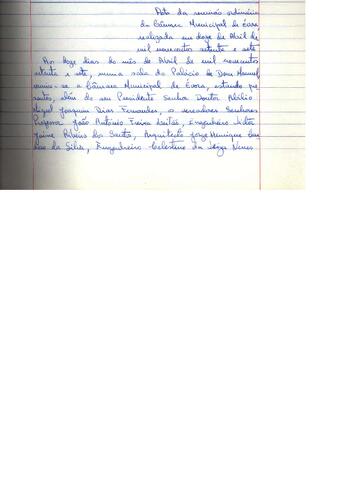 Acta da reunião ordinária
da Câmara Municipal de Évora
realizada em doze de Abril de
mil novecentos setenta e sete
Aos doze dias do mês de Abril de mil novecentos
setenta e sete, numa sala do Palácio de Dom Manuel,
reuniu-se a Câmara Municipal de Évora, estando pre
sentes, além do seu Presidente Senhor Doutor Abílio
Miguel Joaquim Dias Fernandes, os vereadores Senhores
Professor João António Freixa Leitão, Engenheiro Victor
Jaime Ribeiro dos Santos, Arquitecto Jorge Henrique
da Silva, Engenheiro Celestino da Neves